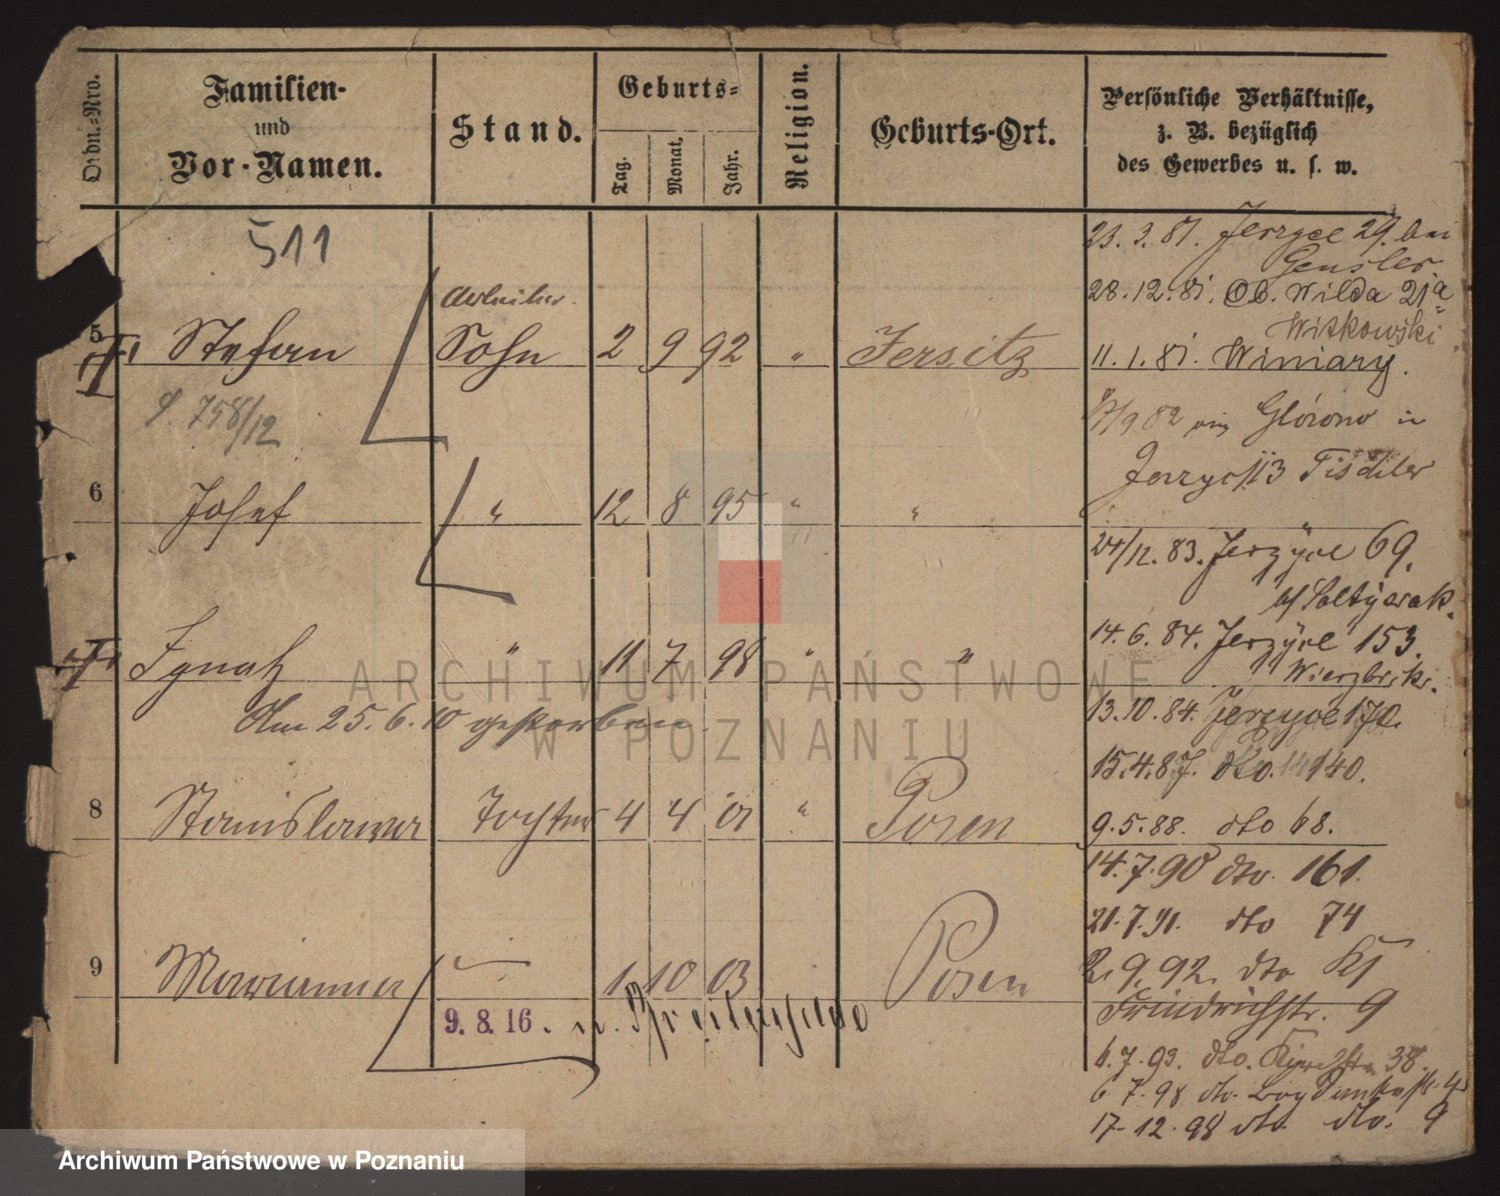 Ordn.-Nro.
Familien-
und
Vor-Namen.
Stand.
Geburts-
Tag.
Monat.
Jahr.
Religion.
Geburts-Ort.
Persönliche Verhältnisse,
z. B. bezüglich
des Gewerbes u. s. w.
511
Arbeiter.
5 Stefan Sohn 2 9 92 " Jersitz
758/12
6 Josef " 12 8 95 " "
Ignatz " 11 7 98 " "
Am 25.6.10 gestorben.
8 Stanislawa Tochter 4 4 01 " Posen
9 Marianna 1 10 03 Posen
9. 8. 16. n.
23. 3. 81. Jerzyce 29. bei
Gensler.
28.12.81. Ob. Wilda 21a
Witkowski
11.1.81. Winiary.
17/9 82 Glówno in
Jerzyc 113 Tischler
24/12. 83. Jerzyce 69.
b/ Soltysiak.
14.6.84. Jerzyce 153.
Wierzbicki.
13.10.84. Jerzyce 170.
15.4.87. dto. 140.
9.5.88. dto 68.
14.7.90 dto. 161.
21.7.91. dto 74
2.9.92. dto
Friedrichstr. 9
6.7.93. dto. 38.
6 7.98 dto.
17-12.98 dto dto. 9
ARCHIWUM PAŃSTWOWE
W POZNANIU
Archiwum Państwowe w Poznaniu